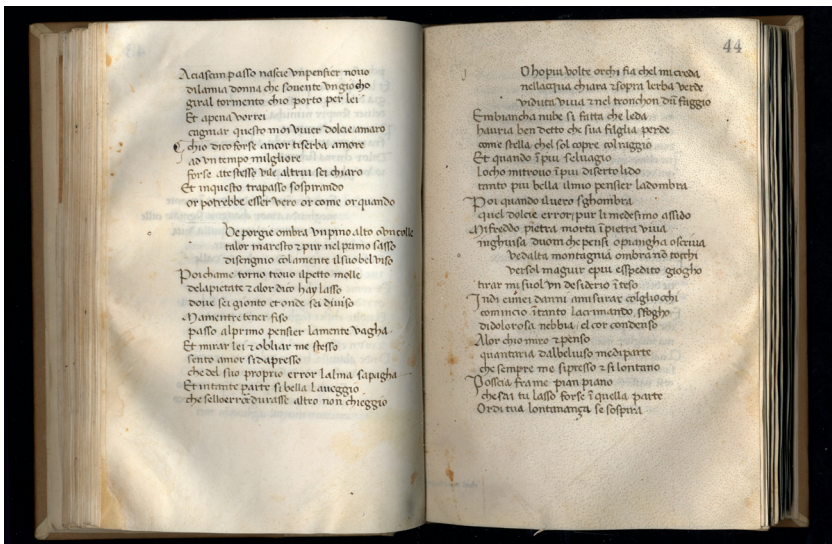 A ciascun passo nascie vnpensier nouo
dilamia donna che souente vngiocho
giral tormento chio porto per lei
Et apena vorrei
cugniar questo moi viuer dolcie amaro
Chio dico forse ancor tiserba amore
ad vn tempo milgliore
forse atestesso vile altrui sei chiaro
Et inquesto trapasso sospirando
or potrebbe esser vero or come or quando
De porgie ombra vnpino alto oduncolle
talor maresto ⁊ pur nel primo sasso
disengnio colamente ilsuo bel viso
Poi chame torno trouo ilpetto molle
delapietate ⁊ alor dico hay lasso
doue sei gionto et onde sei diuiso
Mamentre tener fiso
passo alprimo pensier lamente vagha
Et mirar lei ⁊ obliar me stesso
sento amor sidapresso
che del suo proprio error lalma sapagha
Et intante parte si bella laueggio
che selloerror durasse altro non chieggio
44
O hopiu volte or chi fia chel mi creda
nellacqua chiara ⁊ sopra lerba verde
viduta viua ⁊ nel tronchon dũ faggio
Embiancha nube si fatta che leda
hauria ben detto che sua filglia perde
come stella chel sol copre col raggio
Et quando ĩpiu seluagio
locho mitrouo ĩpiu diserto lido
tanto piu bella ilmio pensier ladombra
Poi quando iluero sghombra
quel dolcie error pur li medesimo assido
Mifreddo pietra morta ĩ pietra viua
inghuisa duom che pensi ⁊ piangha ⁊ scriua
Vedalta montagnia ombra nõ tocchi
versol magiur epiu esspedito giogho
tirar mi suol vn desiderio ĩteso
Indi eimei danni amisurar colgliocchi
comincio ĩtanto lacrimando sfogho
didolorosa nebbia el cor condenso
Alor chio miro ⁊ penso
quantaria dalbeluiso mediparte
che sempre me sipresso ⁊ si lontano
Poscia frame pian piano
che fai tu lasso forse ĩ quella parte
Or di tua lontananza se sospira